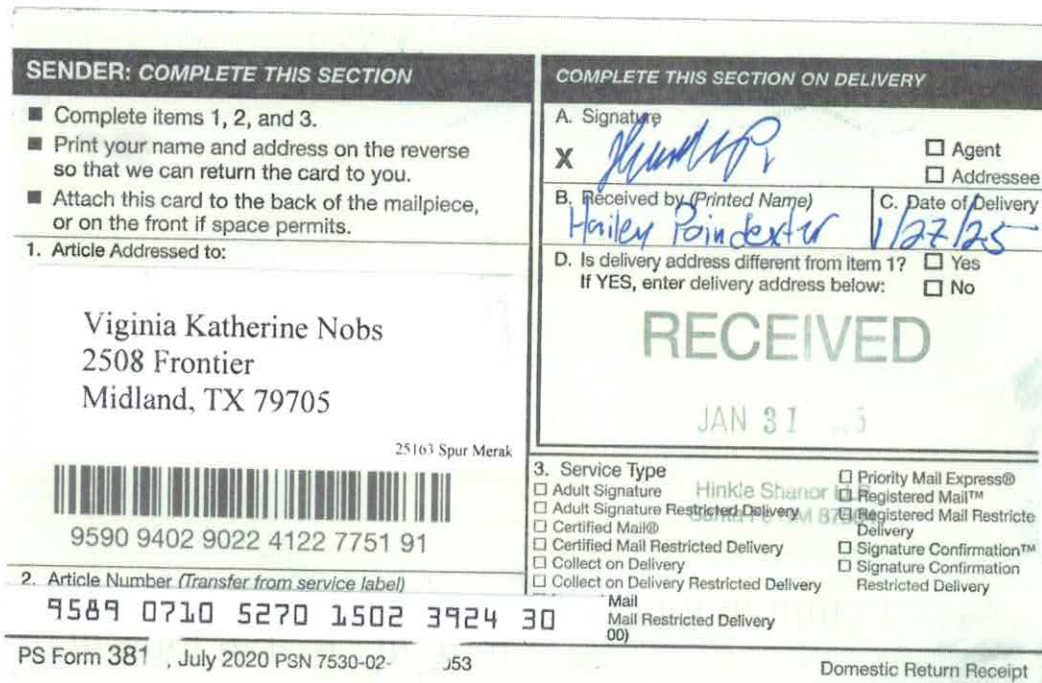 SENDER: COMPLETE THIS SECTION
■ Complete items 1, 2, and 3.
■ Print your name and address on the reverse
so that we can return the card to you.
■ Attach this card to the back of the mailpiece,
or on the front if space permits.
1. Article Addressed to:
Viginia Katherine Nobs
2508 Frontier
Midland, TX 79705
25163 Spur Merak
9590 9402 9022 4122 7751 91
2. Article Number (Transfer from service label)
9589 0710 5270 1502 3924 30
COMPLETE THIS SECTION ON DELIVERY
A. Signature
X
☐ Agent
☐ Addressee
B. Received by (Printed Name)
Hailey Poindexter
C. Date of Delivery
1/27/25
D. Is delivery address different from item 1? ☐ Yes
If YES, enter delivery address below: ☐ No
RECEIVED
JAN 31
Hinkle Shanor
3. Service Type
☐ Adult Signature
☐ Adult Signature Restricted Delivery
☐ Certified Mail®
☐ Certified Mail Restricted Delivery
☐ Collect on Delivery
☐ Collect on Delivery Restricted Delivery
Mail
Mail Restricted Delivery
00)
☐ Priority Mail Express®
☐ Registered Mail™
☐ Registered Mail Restricte
Delivery
☐ Signature Confirmation™
☐ Signature Confirmation
Restricted Delivery
PS Form 381 , July 2020 PSN 7530-02- 053
Domestic Return Receipt